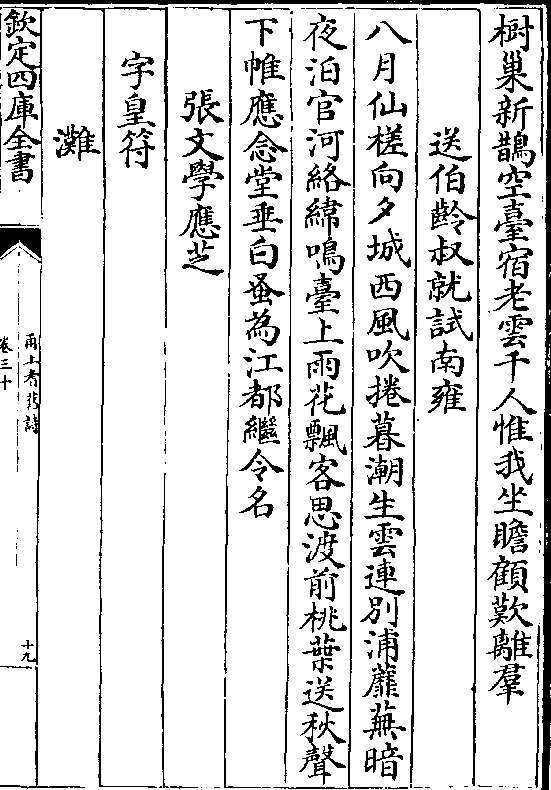 樹巢新鵲空臺宿老雲千人惟我坐瞻顧歎離羣
送伯齡叔就試南雍
八月仙槎向夕城西風吹捲暮潮生雲連別浦蘼蕪暗
夜泊官河絡緯鳴臺上雨花飄客思渡前桃葉送秋聲
下帷應念堂垂白蚤為江都繼令名
張文學應芝
字皇符
灘
欽定四庫全書
甬上耆舊詩
卷三十
十九